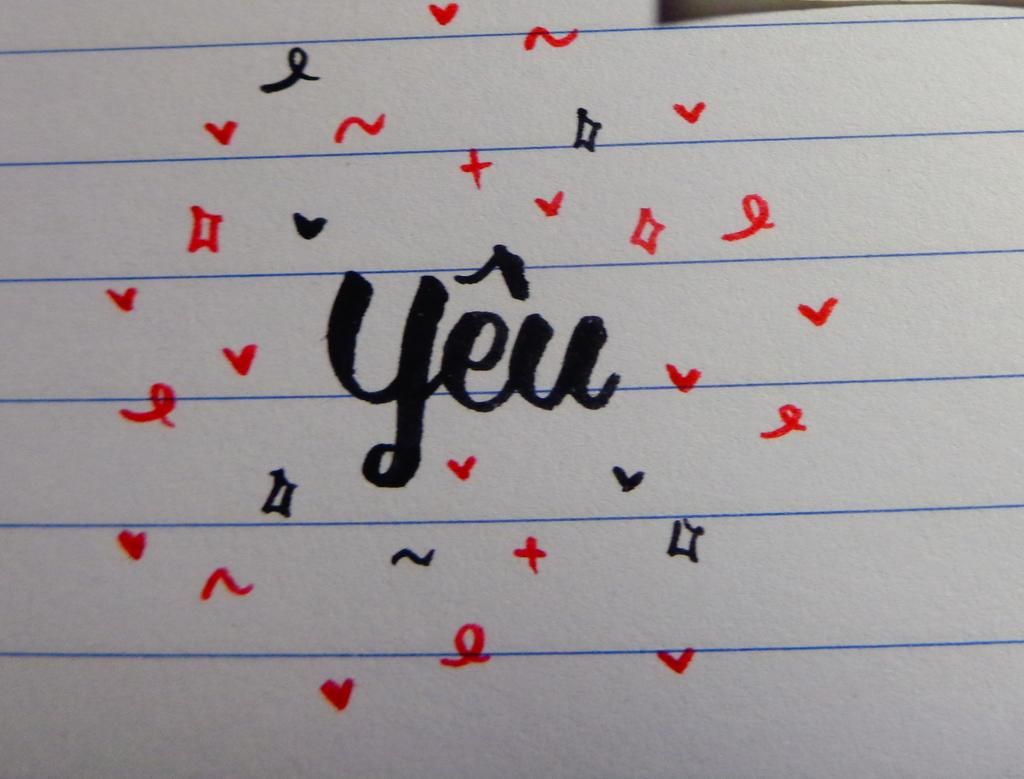 yêu